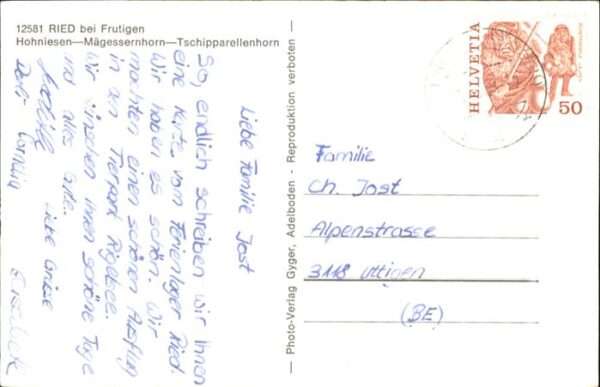 12581 RIED bei Frutigen
Hohniesen—Mägessernhorn—Tschipparellenhorn
Liebe Familie Jost
So, endlich schreiben wir Ihnen
eine Karte vom Ferienlager Ried.
Wir haben es schön. Wir
machten einen schönen Ausflug
in den Tierpark
Wir wünschen Ihnen schöne Tage
und alles Gute.
Liebe Grüsse
— Photo-Verlag Gyger, Adelboden - Reproduktion verboten —
HELVETIA
50
Familie
Ch. Jost
Alpenstrasse
3118 Uttigen
(BE)